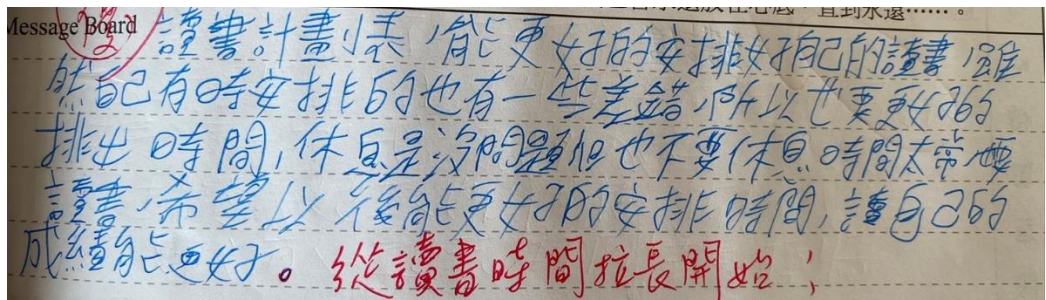 直到永遠……。
Message Board 讀書計畫表,能更好的安排好自己的讀書,雖
然自己有時安排的也有一些差錯,所以也要更好的
排出時間,休息是沒問題但也不要休息時間太常,要
讀書,希望以後能更好的安排時間,讓自己的
成績能更好。從讀書時間拉長開始;